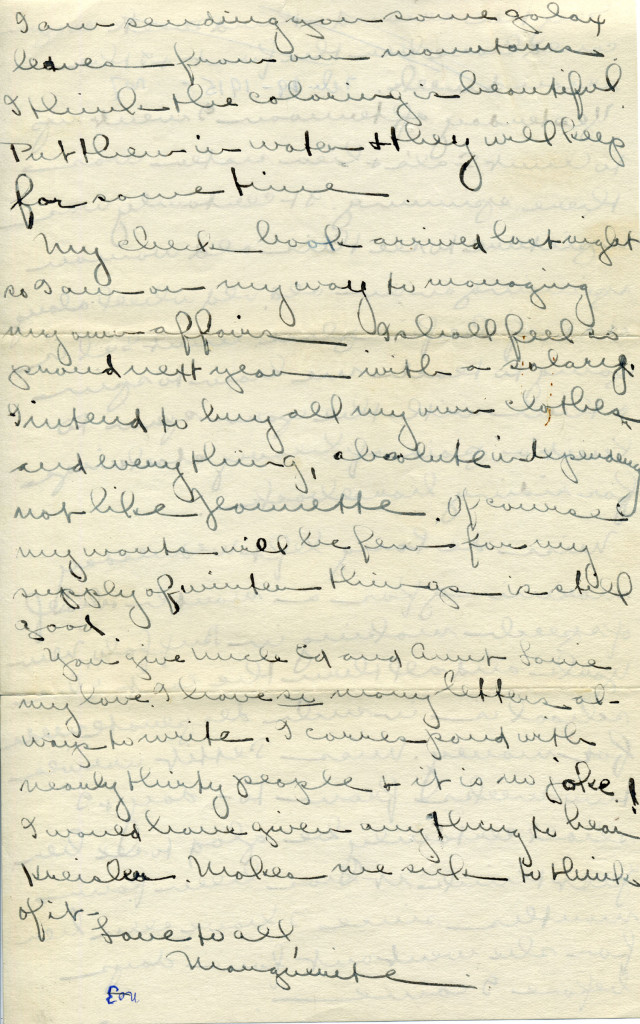 I am sending you some galax
leaves from our mountains
I think the coloring is beautiful
Put them in water & they will keep
for some time
My check book arrived last night
so I am on my way to managing
my own affairs I shall feel so
proud next year with a salary.
I intend to buy all my own clothes
and everything, absolute independency
not like Jeannette. Of course
my wants will be few for my
supply of winter things is still
good.
You give Uncle Ed and Aunt
my love. I have so many letters al-
ways to write. I correspond with
nearly thirty people & it is no joke!
I would have given anything to hear
Kreisler. Makes me sick to think
of it-
Love to all
Marguerite